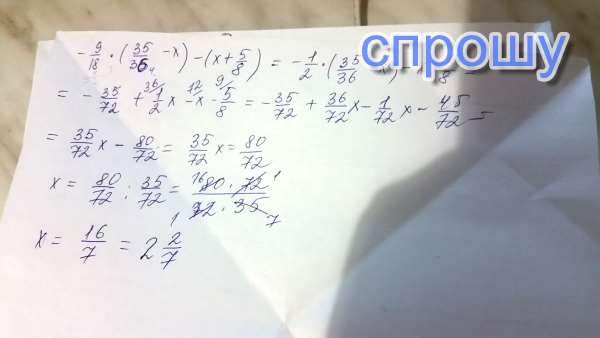 спрошу
-9/18 · (35/36 - x) - (x + 5/8) = -1/2 · (35/36
= -35/72 + 1/2 x - x - 5/8 = -35/72 + 36/72 x - 1/72 x - 45/72 =
= 35/72 x - 80/72 = 35/72 x = 80/72
x = 80/72 : 35/72 = 80 · 72 / 72 · 35
x = 16/7 = 2 2/7